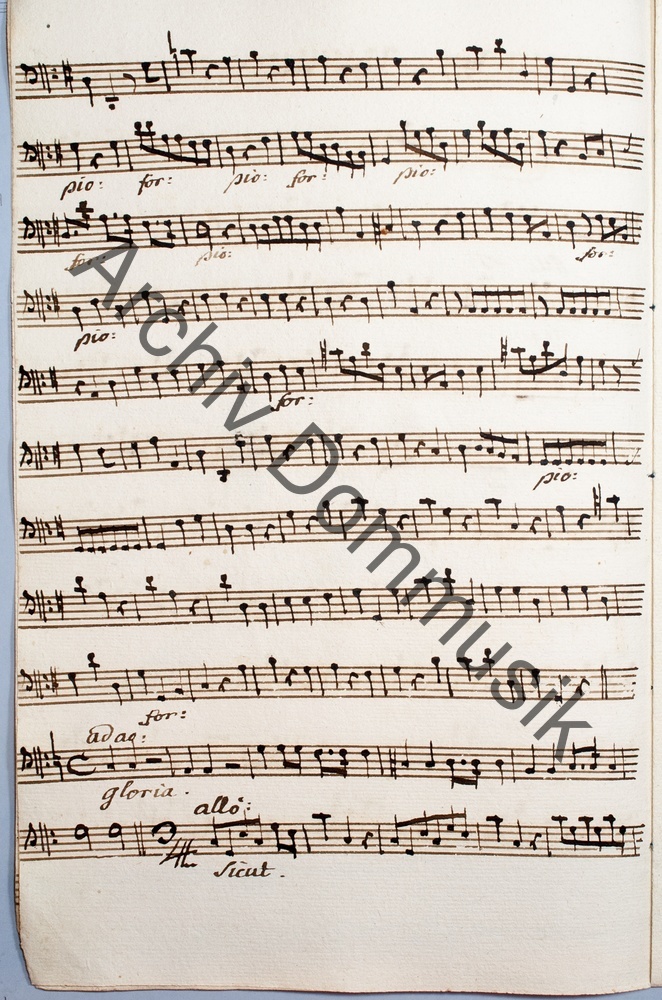 pio: for: pio: for: pio:
for: pio: for:
pio:
for:
pio:
for:
adag:
gloria.
allo:
Sicut.
Archiv Dommusik